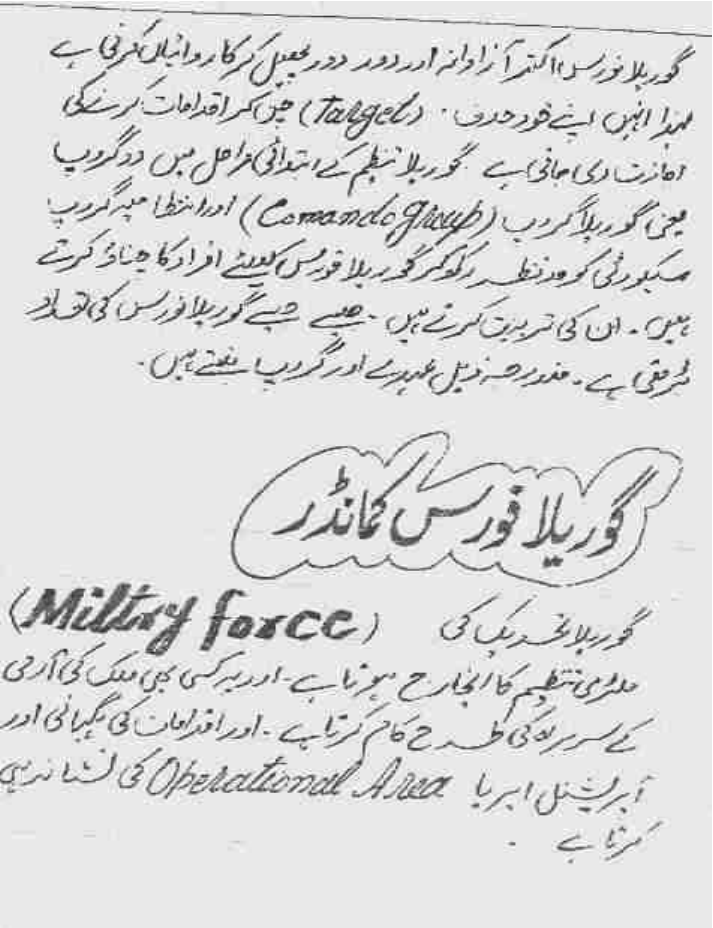 گوریلا فورس اکثر آزادانہ اور دور دور پھیل کر کاروائیاں کرتی ہے
لہذا انہیں اپنے خود ھدف (Target) چن کر اقدامات کرنے کی
اجازت دی جاتی ہے۔ گوریلا تنظیم کے ابتدائی مراحل میں دو گروپ
یعنی گوریلا گروپ (Comando Group) اور انتظامیہ گروپ
سیکورٹی کو مدنظر رکھ کر گوریلا فورس کیلئے افراد کا چناؤ کرتے
ہیں۔ ان کی تربیت کرتے ہیں۔ جیسے جیسے گوریلا فورس کی تعداد
بڑھتی ہے۔ مندرجہ ذیل عہدے اور گروپ بنتے ہیں۔
گوریلا فورس کمانڈر
گوریلا تحریک کی (Miltry force)
ملٹری تنظیم کا انچارج ہوتا ہے۔ اور یہ کسی بھی ملک کی آرمی
کے سربراہ کی طرح کام کرتا ہے۔ اور اقدامات کی نگہبانی اور
آپریشنل ایریا Operational Area کی نشاندہی
کرتا ہے۔